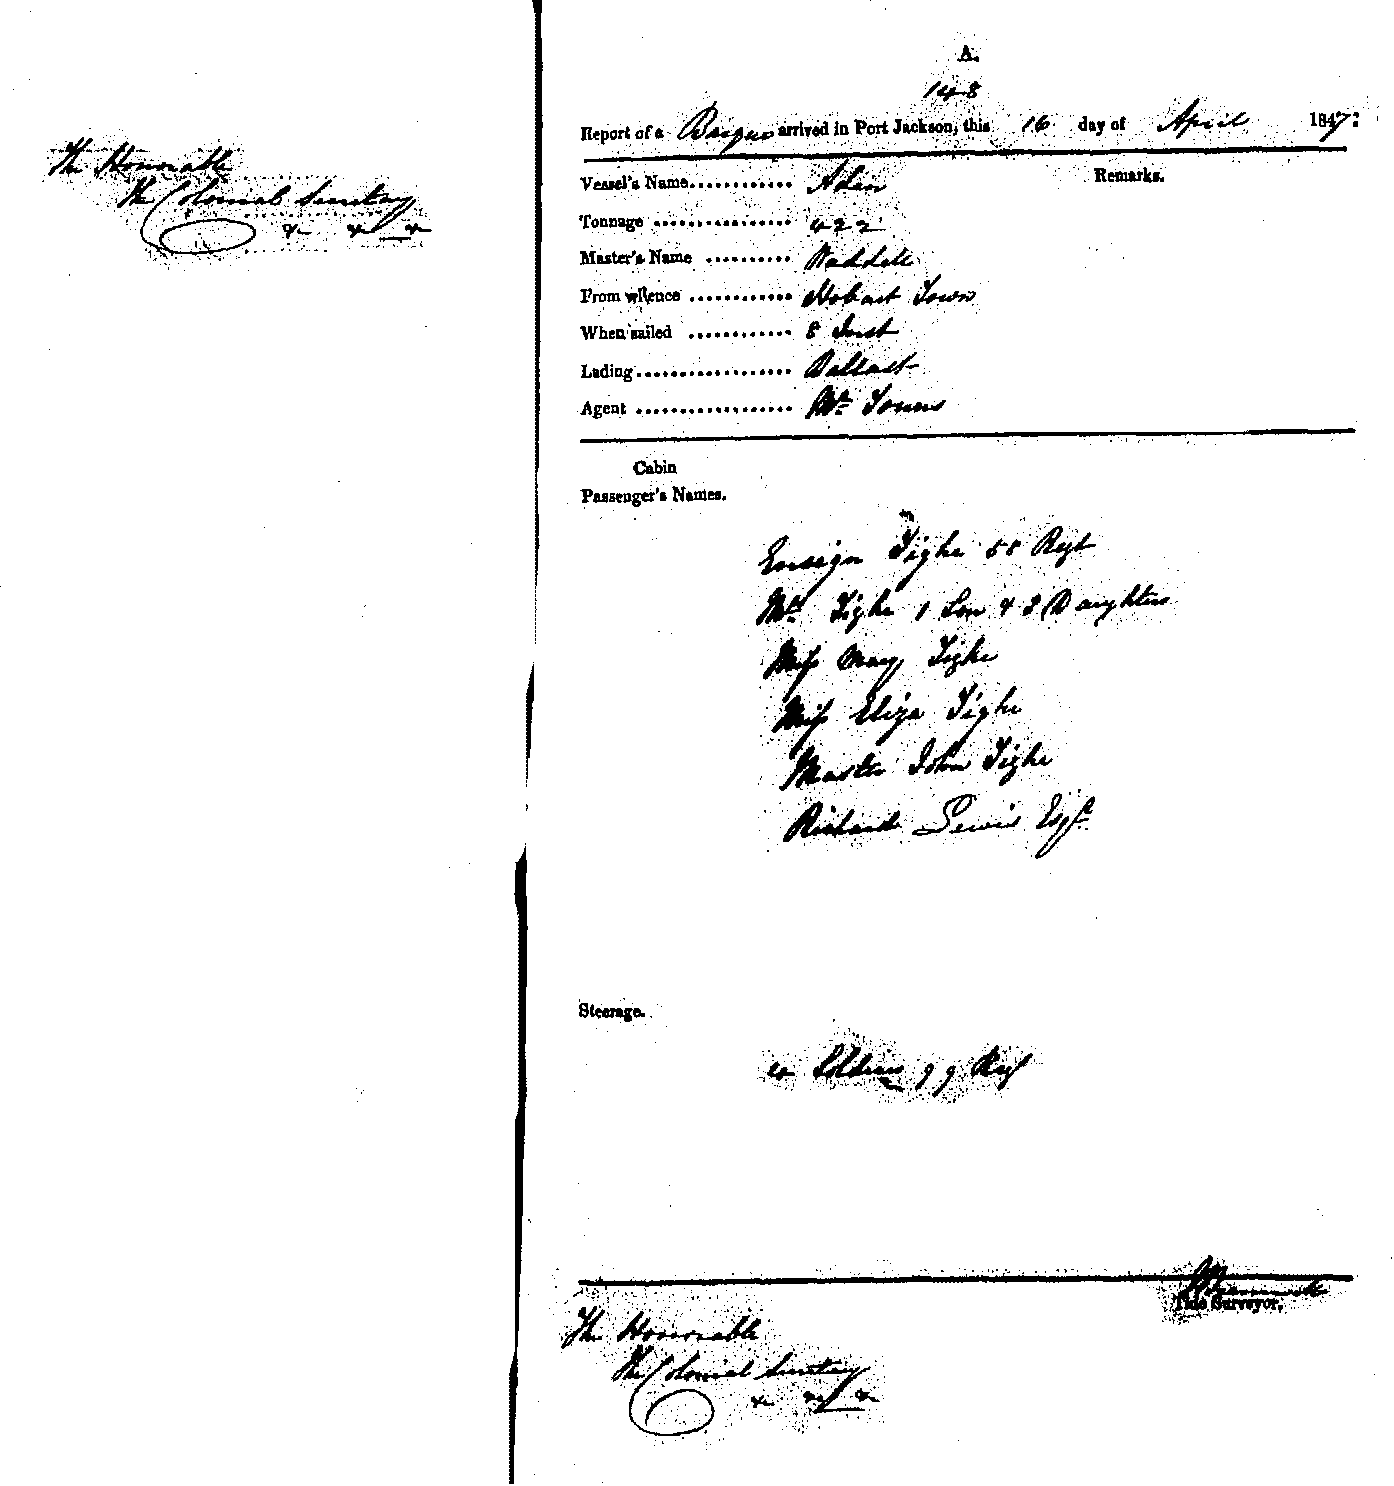 The Honorable
The Colonial Secretary
&c &c &c
A.
148
Report of a Barque arrived in Port Jackson, this 16 day of April 1847:
Vessel's Name............ Aden
Remarks.
Tonnage ................ 422
Master's Name .......... Waddell
From whence ............ Hobart Town
When sailed ........... 8 Inst
Lading.................. Ballast
Agent .................. Mr Towns
Cabin
Passenger's Names.
Ensign Tighe 58 Regt
Mrs Tighe 1 Son & 2 Daughters
Miss Mary Tighe
Miss Eliza Tighe
Master John Tighe
Richard Lewis Esqr
Steerage.
Soldiers 99 Reg
Tide Surveyor.
The Honorable
The Colonial Secretary
&c &c &c